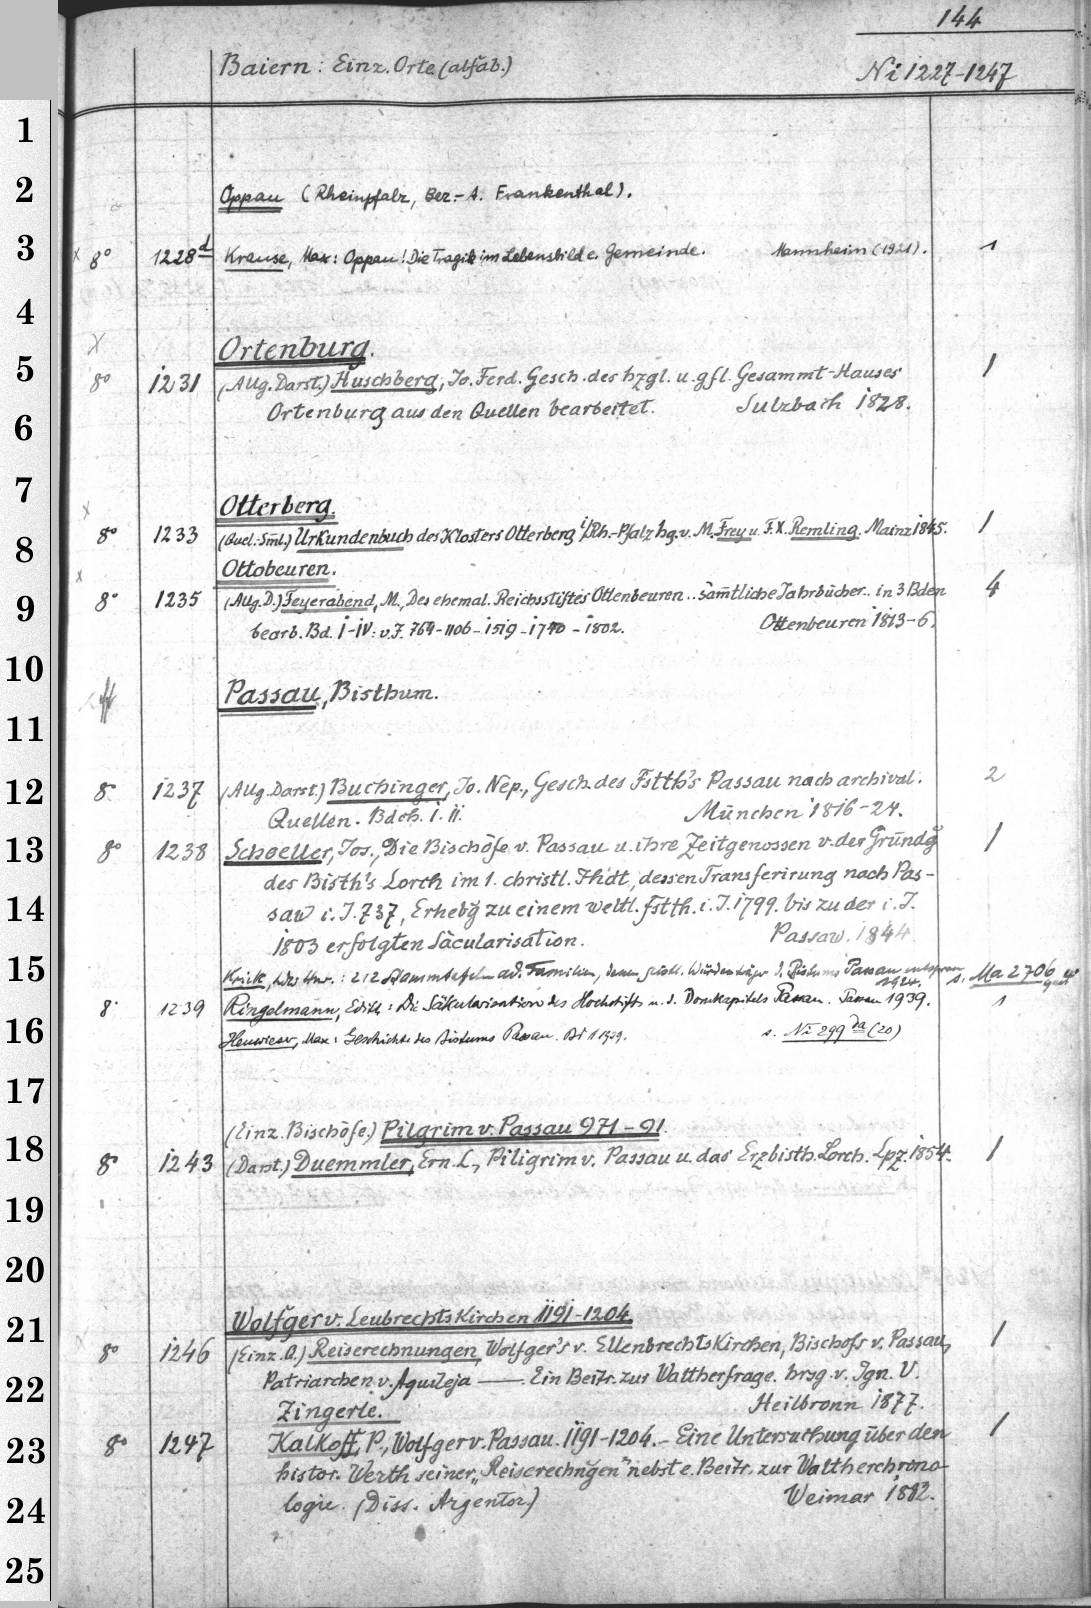 144
Baiern: Einz. Orte (alfab.) Ni 1227-1247
1
2 Oppau (Rheinpfalz, Bez.-A. Frankenthal).
3 x 8° 1228d Krause, Max: Oppau! Die Tragik im Lebensbild e. Gemeinde. Mannheim (1921). 1
4
x Ortenburg.
5 8° 1231 (Allg. Darst.) Huschberg, Jo. Ferd. Gesch. des hzgl. u. gfl. Gesammt-Hauses 1
6 Ortenburg aus den Quellen bearbeitet. Sulzbach 1828.
7
x Otterberg.
8 8° 1233 (Quel.-Sml.) Urkundenbuch des Klosters Otterberg i/Rh.-Pfalz hg. v. M. Frey u. F. X. Remling. Mainz 1845. 1
x Ottobeuren.
9 8° 1235 (Allg. D.) Feyerabend, M., Des ehemal. Reichsstiftes Ottenbeuren .. säm̄tliche Jahrbücher .. in 3 Bden 4
bearb. Bd. I-IV: v. J. 764-1106-1519-1740-1802. Ottenbeuren 1813-6.
10
Passau, Bisthum.
11
12 8° 1237 (Allg. Darst.) Buchinger, Jo. Nep., Gesch. des Fstth's Passau nach archival. 2
Quellen. Bdch. I. II. München 1816-24.
13 8° 1238 Schoeller, Jos., Die Bischöfe v. Passau u. ihre Zeitgenossen v. der Gründg 1
des Bisth's Lorch im 1. christl. Jhdt, dessen Transferirung nach Pas-
14 sau i. J. 737, Erhebg zu einem weltl. Fstth. i. J. 1799. bis zu der i. J.
1803 erfolgten Säcularisation. Passau. 1844
15 Krick, Ldw. Hnr.: 212 Stammtafeln ad. Familien, denen geistl. Würdenträger d. Bistums Passau entspross 1924. s. Ma 2706
8° 1239 Ringelmann, Edith: Die Säkularisation des Hochstifts u. d. Domkapitels Passau. Passau 1939. 1
16 Heuwieser, Max: Geschichte des Bistums Passau. Bd 1 1939. s. Ni 299 da (20)
17
(Einz. Bischöfe.) Pilgrim v. Passau 971-91.
18 8° 1243 (Darst.) Duemmler, Ern. L., Piligrim v. Passau u. das Erzbisth. Lorch. Lpz. 1854. 1
19
20
21 Wolfger v. Leubrechtskirchen 1191-1204
8° 1246 (Einz. Q.) Reiserechnungen, Wolfger's v. Ellenbrechtskirchen, Bischofs v. Passau, 1
22 Patriarchen v. Aquileja —— Ein Beitr. zur Waltherfrage. hrsg. v. Ign. V.
Zingerle. Heilbronn 1877.
23 8° 1247 Kalkoff, P., Wolfger v. Passau. 1191-1204. - Eine Untersuchung über den 1
histor. Werth seiner „Reiserechngen" nebst e. Beitr. zur Waltherchrono-
24 logie. (Diss. Argentor.) Weimar 1882.
25